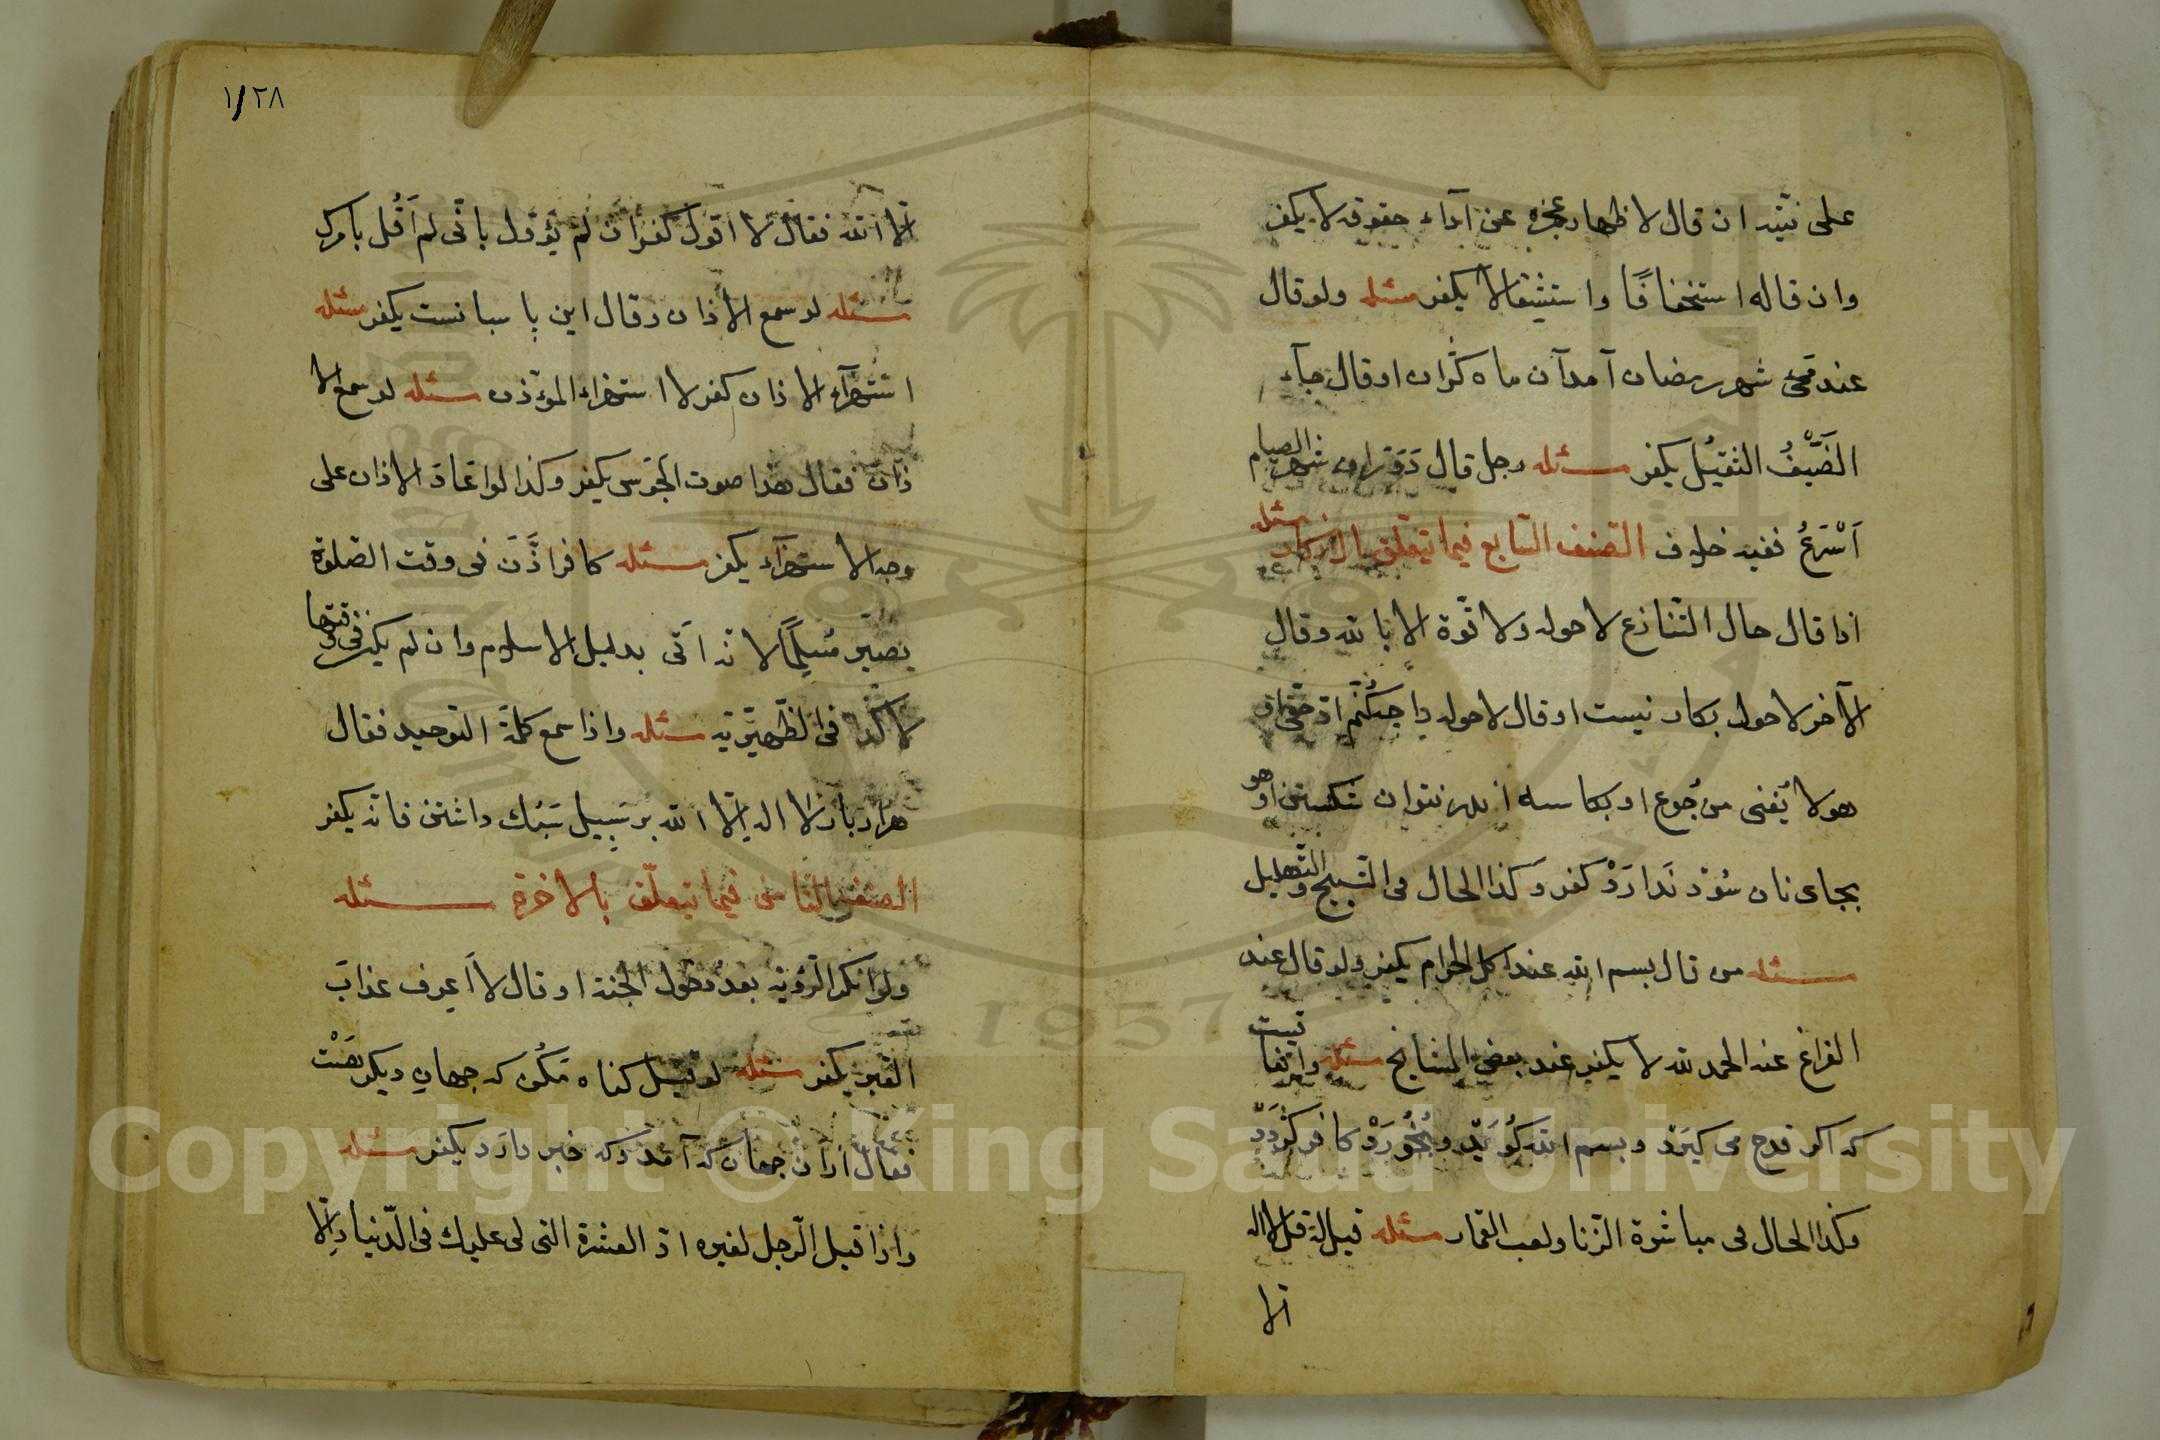 على نيته ان قال لاظهار عجزه عن اداء حقوقه لا يكفر
وان قاله استخفافًا واستثقالا يكفر مسئله ولو قال
عند مجئ شهر رمضان آمد آن ماه كران او قال جآء
الضَّيْفُ الثقيل يكفر مسئله رجل قال شهر الصيام
اَسْرَعُ ففيه خلاف الصنف السّابع فيما يتعلّق بالاذكار مسئله
اذا قال حال التّنازع لا حول ولا قوّة الا بالله وقال
الآخر لا حول بكار نيست او قال لا حول
هو لا يُغنى من جُوع او بكاسه اندر نتوان شكستن او هو
بجاى نان سُوْد نَدارَدْ كفر وكذا الحال فى التّسبيح والتّهليل
مسئله من قال بسم الله عند اكل الحرام يكفر ولو قال عند
الفراغ عنه الحمد لله لا يكفر عند بعض المشايخ مسئله واتفاق نيست
كه اكر قدح مى كيرَد وبسم الله كُويَد وبُخُورَدْ كافر كَرْدَدْ
وكذا الحال فى مباشرة الزّنا ولعب القمار مسئله قيل له قل لا اله
الا
١/٢٨
الّا الله فقال لا اقول كفر ان لم يؤول بانّى لم اَقُل بامرك
مسئله لو سمع الاذان وقال اين پاسبانست يكفر مسئله
استهزآء الاذان كفر لا استهزاء المؤذن مسئله لو سمع الا
ذان فقال هذا صوت الجرس يكفر وكذا لو اعاد الاذان على
وجه الاستهزآء يكفر مسئله كافر اذَّنَ فى وقت الصّلوة
يصير مُسلِمًا لانّه اَتى بدليل الاسلام وان لم يكن فى وقتها
لا كذا فى الظّهيريّة مسئله واذا سمع كلمة التّوحيد فقال
هزار بار لا اله الّا الله بر سَبيل سَبُك داشتن فانّه يكفر
الصنف الثامن فيما يتعلّق بالاخرة مسئله
ولو انكر الرّؤية بعد دخول الجنّة او قال لا اَعرف عذاب
القبر يكفر مسئله لو قيل كناه مَكُن كه جهان ديكر هَسْت
فقال از آن جهان كه آمد وكه خبر دارَد يكفر مسئله
واذا قيل الرّجل لغيره ادّ العشرة التى لى عليك فى الدّنيا وإلّا